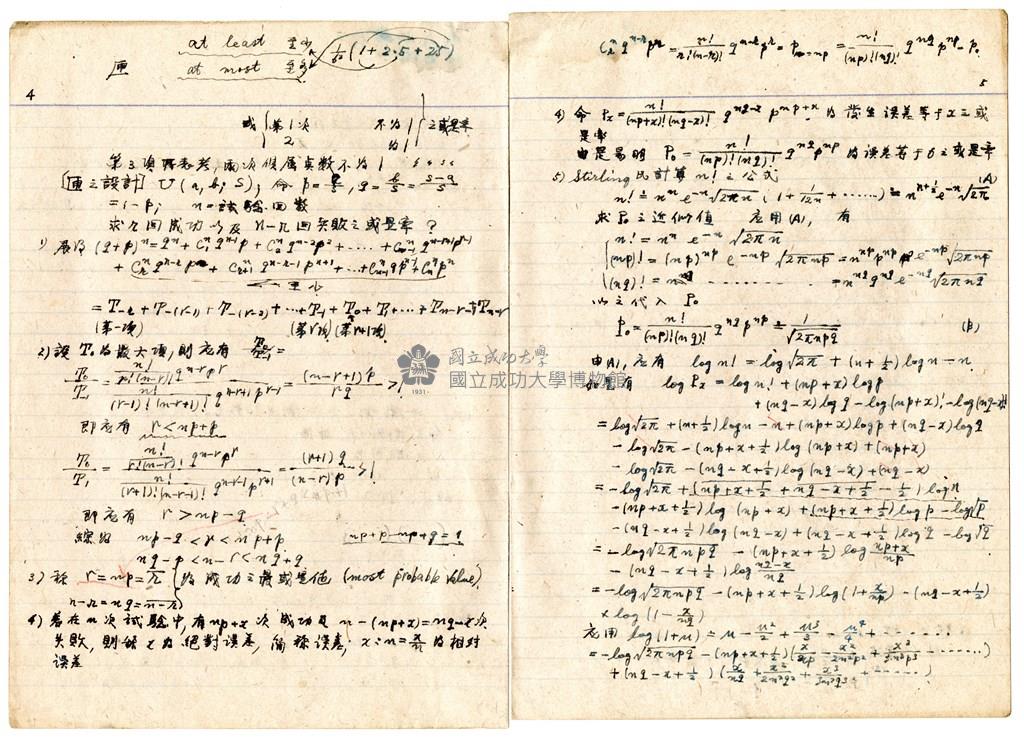 at least 至少
at most 至多
1/60 (1+2·5+25)
匣
4
或 { 第1次 不為1 } 之或是率
2 為1
第三項再思考,兩次候属真數不为1
[匣之設計] U(a, b, s); 命 p = a/s, q = b/s = (s-a)/s
= 1-p; n = 試驗回數
求r回成功以及n-r回失敗之或是率?
1) 展為 (q+p)ⁿ = qⁿ + C₁ⁿ qⁿ⁻¹p + C₂ⁿ qⁿ⁻²p² + ····· +
= T₋r + T₋(r-1) + T₋(r-2) + ··· + T₋₁ + T₀ + T₁ + ··· + Tn-r-1 + Tn-r
(第一項) (第r項) (第r+1項)
2) 設 T₀ 为最大項, 則应有
T₀/T₋₁ = (n!/(r!(n-r)!) qⁿ⁻ʳpʳ) / (n!/((r-1)!(n-r+1)!) qⁿ⁻ʳ⁺¹pʳ⁻¹) = (n-r+1)p / rq > 1
即应有 r < np+p
T₀/T₁ = (n!/(r!(n-r)!) qⁿ⁻ʳpʳ) / (n!/((r+1)!(n-r-1)!) qⁿ⁻ʳ⁻¹pʳ⁺¹) = (r+1)q / (n-r)p > 1
即应有 r > np-q
綜为 np-q < r < np+p (np+p-np+q=1
nq-p < n-r < nq+q
3) 稱 r = np = r̄ } 为成功之最或是值 (most probable value)
n-r = nq = n-r
4) 若在n次試驗中,有np+x次成功及n-(np+x)=nq-x次
失敗,則稱x为絕對误差,简称误差; x:n = x/n 为相对
误差
Crⁿ qⁿ⁻ʳpʳ = n!/(r!(n-r)!) qⁿ⁻ʳpʳ = Pr=np = n!/((np)!(nq)!) q^nq p^np = P₀
5
4) 命 Pₓ = n!/((np+x)!(nq-x)!) q^(nq-x) p^(np+x) 为發生误差等于x之或
是率
由是易明 P₀ = n!/((np)!(nq)!) q^nq p^np 为误差等于0之或是率
5) Stirling 氏計算 n! 之公式
n! ≒ nⁿ e⁻ⁿ √(2πn) (1 + 1/12n + ······) ≒ n^(n+½) e⁻ⁿ √2π (A)
求P₀之近似值 应用(A), 有
n! = nⁿ e⁻ⁿ √(2πn)
(np)! = (np)^np e^(-np) √(2πnp) = n^np p^np e^(-np) √(2πnp)
(nq)! = n^nq ········· = n^nq q^nq e^(-nq) √(2πnq)
以之代入 P₀
P₀ = n!/((np)!(nq)!) q^nq p^np ≒ 1/√(2πnpq) (B)
由(A), 应有 log n! = log√2π + (n+½) log n - n
有 log Pₓ = log n! + (np+x) log p
+ (nq-x) log q - log(np+x)! - log(nq-x)!
= log√2π + (n+½) log n - n + (np+x) log p + (nq-x) log q
- log√2π - (np+x+½) log(np+x) + (np+x)
- log√2π - (nq-x+½) log(nq-x) + (nq-x)
= -log√2π + (np+x+½ + nq-x+½ - ½) log n
- (np+x+½) log(np+x) + (np+x+½) log p - log√p
- (nq-x+½) log(nq-x) + (nq-x+½) log q - log√q
= -log√(2πnpq) - (np+x+½) log (np+x)/np
- (nq-x+½) log (nq-x)/nq
= -log√(2πnpq) - (np+x+½) log(1+x/np) - (nq-x+½)
× log(1 - x/nq)
应用 log(1+μ) = μ - μ²/2 + μ³/3 - μ⁴/4 + ·····
= -log√(2πnpq) - (np+x+½)(x/np - x²/2n²p² + x³/3n³p³ - ······)
+ (nq-x+½)(x/nq + x²/2n²q² + x³/3n³q³ + ·····)
國立成功大學
國立成功大學博物館
1931